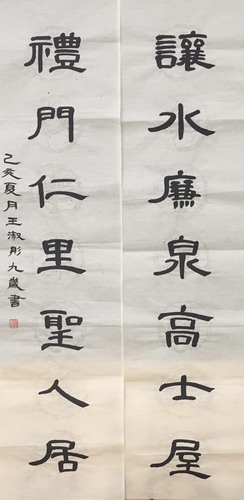 讓水廉泉高士屋
禮門仁里聖人居
己亥夏月王淑彤九歲書